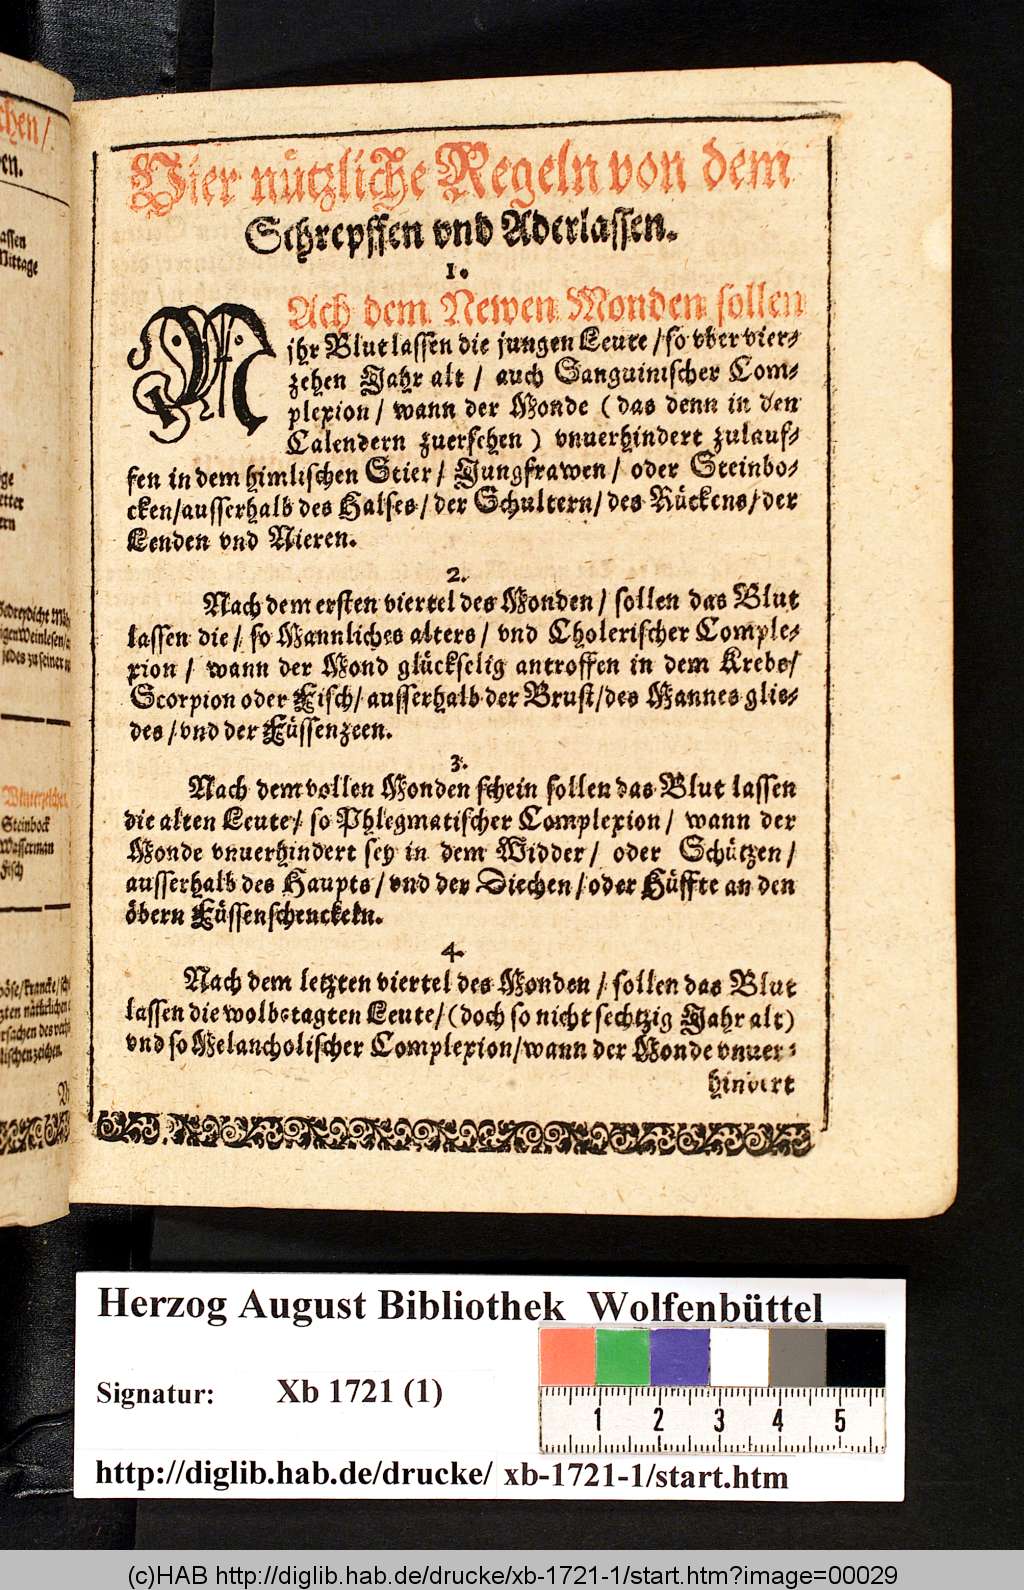 chen/
en.
assen
Mittage
ge
etter
ern
Winterzeichen
Steinbock
Wasserman
Fisch
böse/krancke/sch
lischen zeichen.
Vier nützliche Regeln von dem
Schrepffen vnd Aderlassen.
1.
NAch dem Newen Monden sollen
jhr Blut lassen die jungen Leute / so vber vier-
zehen Jahr alt / auch Sanguinischer Com-
plexion / wann der Monde ( das denn in den
Calendern zuersehen ) vnuerhindert zulauf-
fen in dem himlischen Stier / Jungfrawen / oder Steinbo-
cken/ausserhalb des Halses / der Schultern/ des Rückens/ der
Lenden vnd Nieren.
2.
Nach dem ersten viertel des Monden / sollen das Blut
lassen die / so Mannliches alters / vnd Cholerischer Comple-
xion / wann der Mond glückselig antroffen in dem Krebs/
Scorpion oder Fisch/ ausserhalb der Brust/des Mannes glie-
des / vnd der Füssenzeen.
3.
Nach dem vollen Monden schein sollen das Blut lassen
die alten Leute/ so Phlegmatischer Complexion / wann der
Monde vnuerhindert sey in dem Widder / oder Schützen /
ausserhalb des Haupts / vnd der Diechen / oder Hüffte an den
öbern Füssenschenckeln.
4.
Nach dem letzten viertel des Monden / sollen das Blut
lassen die wolbetagten Leute/ (doch so nicht sechtzig Jahr alt)
vnd so Melancholischer Complexion/wann der Monde vnuer-
hindert
Herzog August Bibliothek Wolfenbüttel
Signatur: Xb 1721 (1)
1 2 3 4 5
http://diglib.hab.de/drucke/ xb-1721-1/start.htm
(c)HAB http://diglib.hab.de/drucke/xb-1721-1/start.htm?image=00029